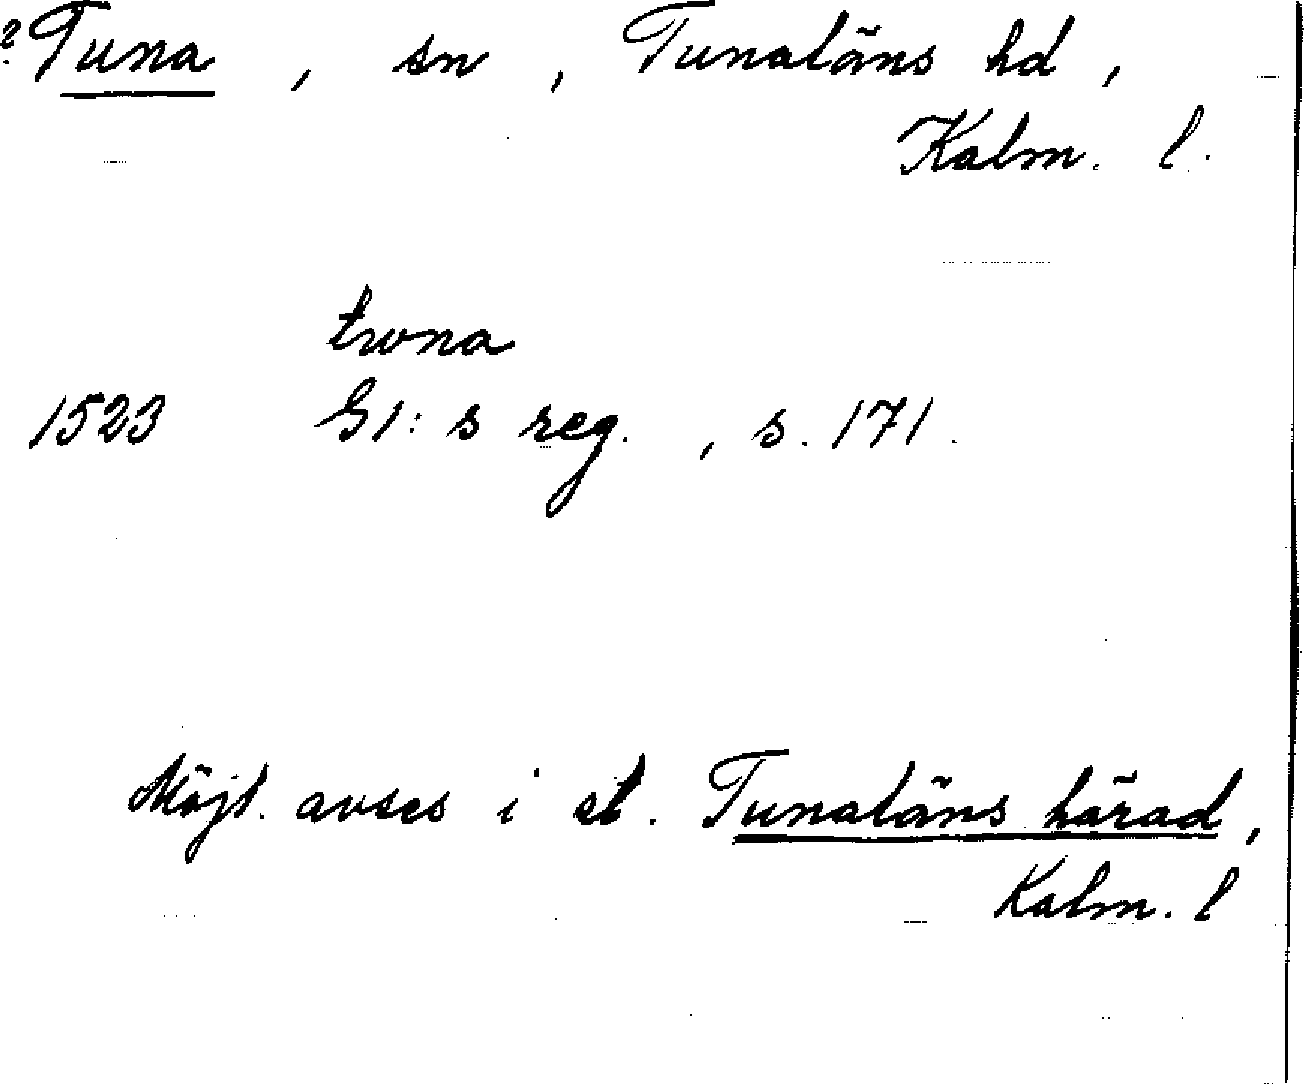 ? Tuna, sn, Tunaläns hd,
Kalm. l.
twna
1523 G1:s reg., s. 171.
Möjl. avses i st. Tunaläns härad,
Kalm. l